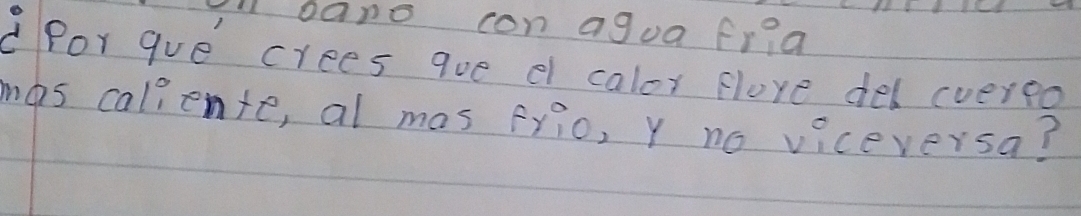 baño con agua fria
¿Por qué crees que el calor fluye del cuerpo
mas caliente, al mas frio, y no viceversa?